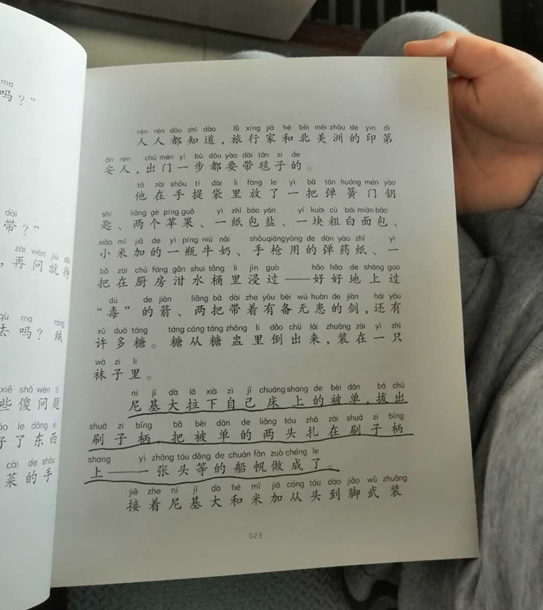 ma
吗？”
dài
带？”
zài wèn jiù dǎ
，再问就得
qù ma
去吗？孩
xiē shǎ wèn tí
些傻问题
了东西
cài de shǒu
菜的手
rén rén dōu zhī dào lǚ xíng jiā hé běi měi zhōu de yìn dì
人人都知道，旅行家和北美洲的印第
ān rén chū mén yí bù dōu yào dài tǎn zi de
安人，出门一步都要带毯子的。
tā zài shǒu tí dài lǐ fàng le yì bǎ tán huáng mén yào
他在手提袋里放了一把弹簧门钥
shi liǎng gè píng guǒ yì zhǐ bāo yán yí kuài cū bái miàn bāo
匙、两个苹果、一纸包盐、一块粗白面包、
xiǎo mǐ jiā de yì píng niú nǎi shǒuqiāngyòng de dàn yào zhǐ yì
小米加的一瓶牛奶、手枪用的弹药纸、一
bǎ zài chú fáng gān shuǐ tǒng lǐ jìn guò hǎo hǎo de shàng guo
把在厨房泔水桶里浸过——好好地上过
dú de jiàn liǎng bǎ dài zhe yǒu bèi wú huàn de jiàn hái yǒu
“毒”的箭、两把带着有备无患的剑，还有
xǔ duō táng táng cóng táng zhōng lǐ dào chū lái zhuāng zài yì zhī
许多糖。糖从糖盅里倒出来，装在一只
wà zi lǐ
袜子里。
ní jī dà lā xià zì jǐ chuáng shang de bèi dān bá chū
尼基大拉下自己床上的被单，拔出
shuā zi bǐng bǎ bèi dān de liǎng tóu zhā zài shuā zi bǐng
刷子柄，把被单的两头扎在刷子柄
shang yì zhāng tóu děng de chuán fān zuò chéng le
上——一张头等的船帆做成了。
jiē zhe ní jī dà hé mǐ jiā cóng tóu dào jiǎo wǔ zhuāng
接着尼基大和米加从头到脚武装
023